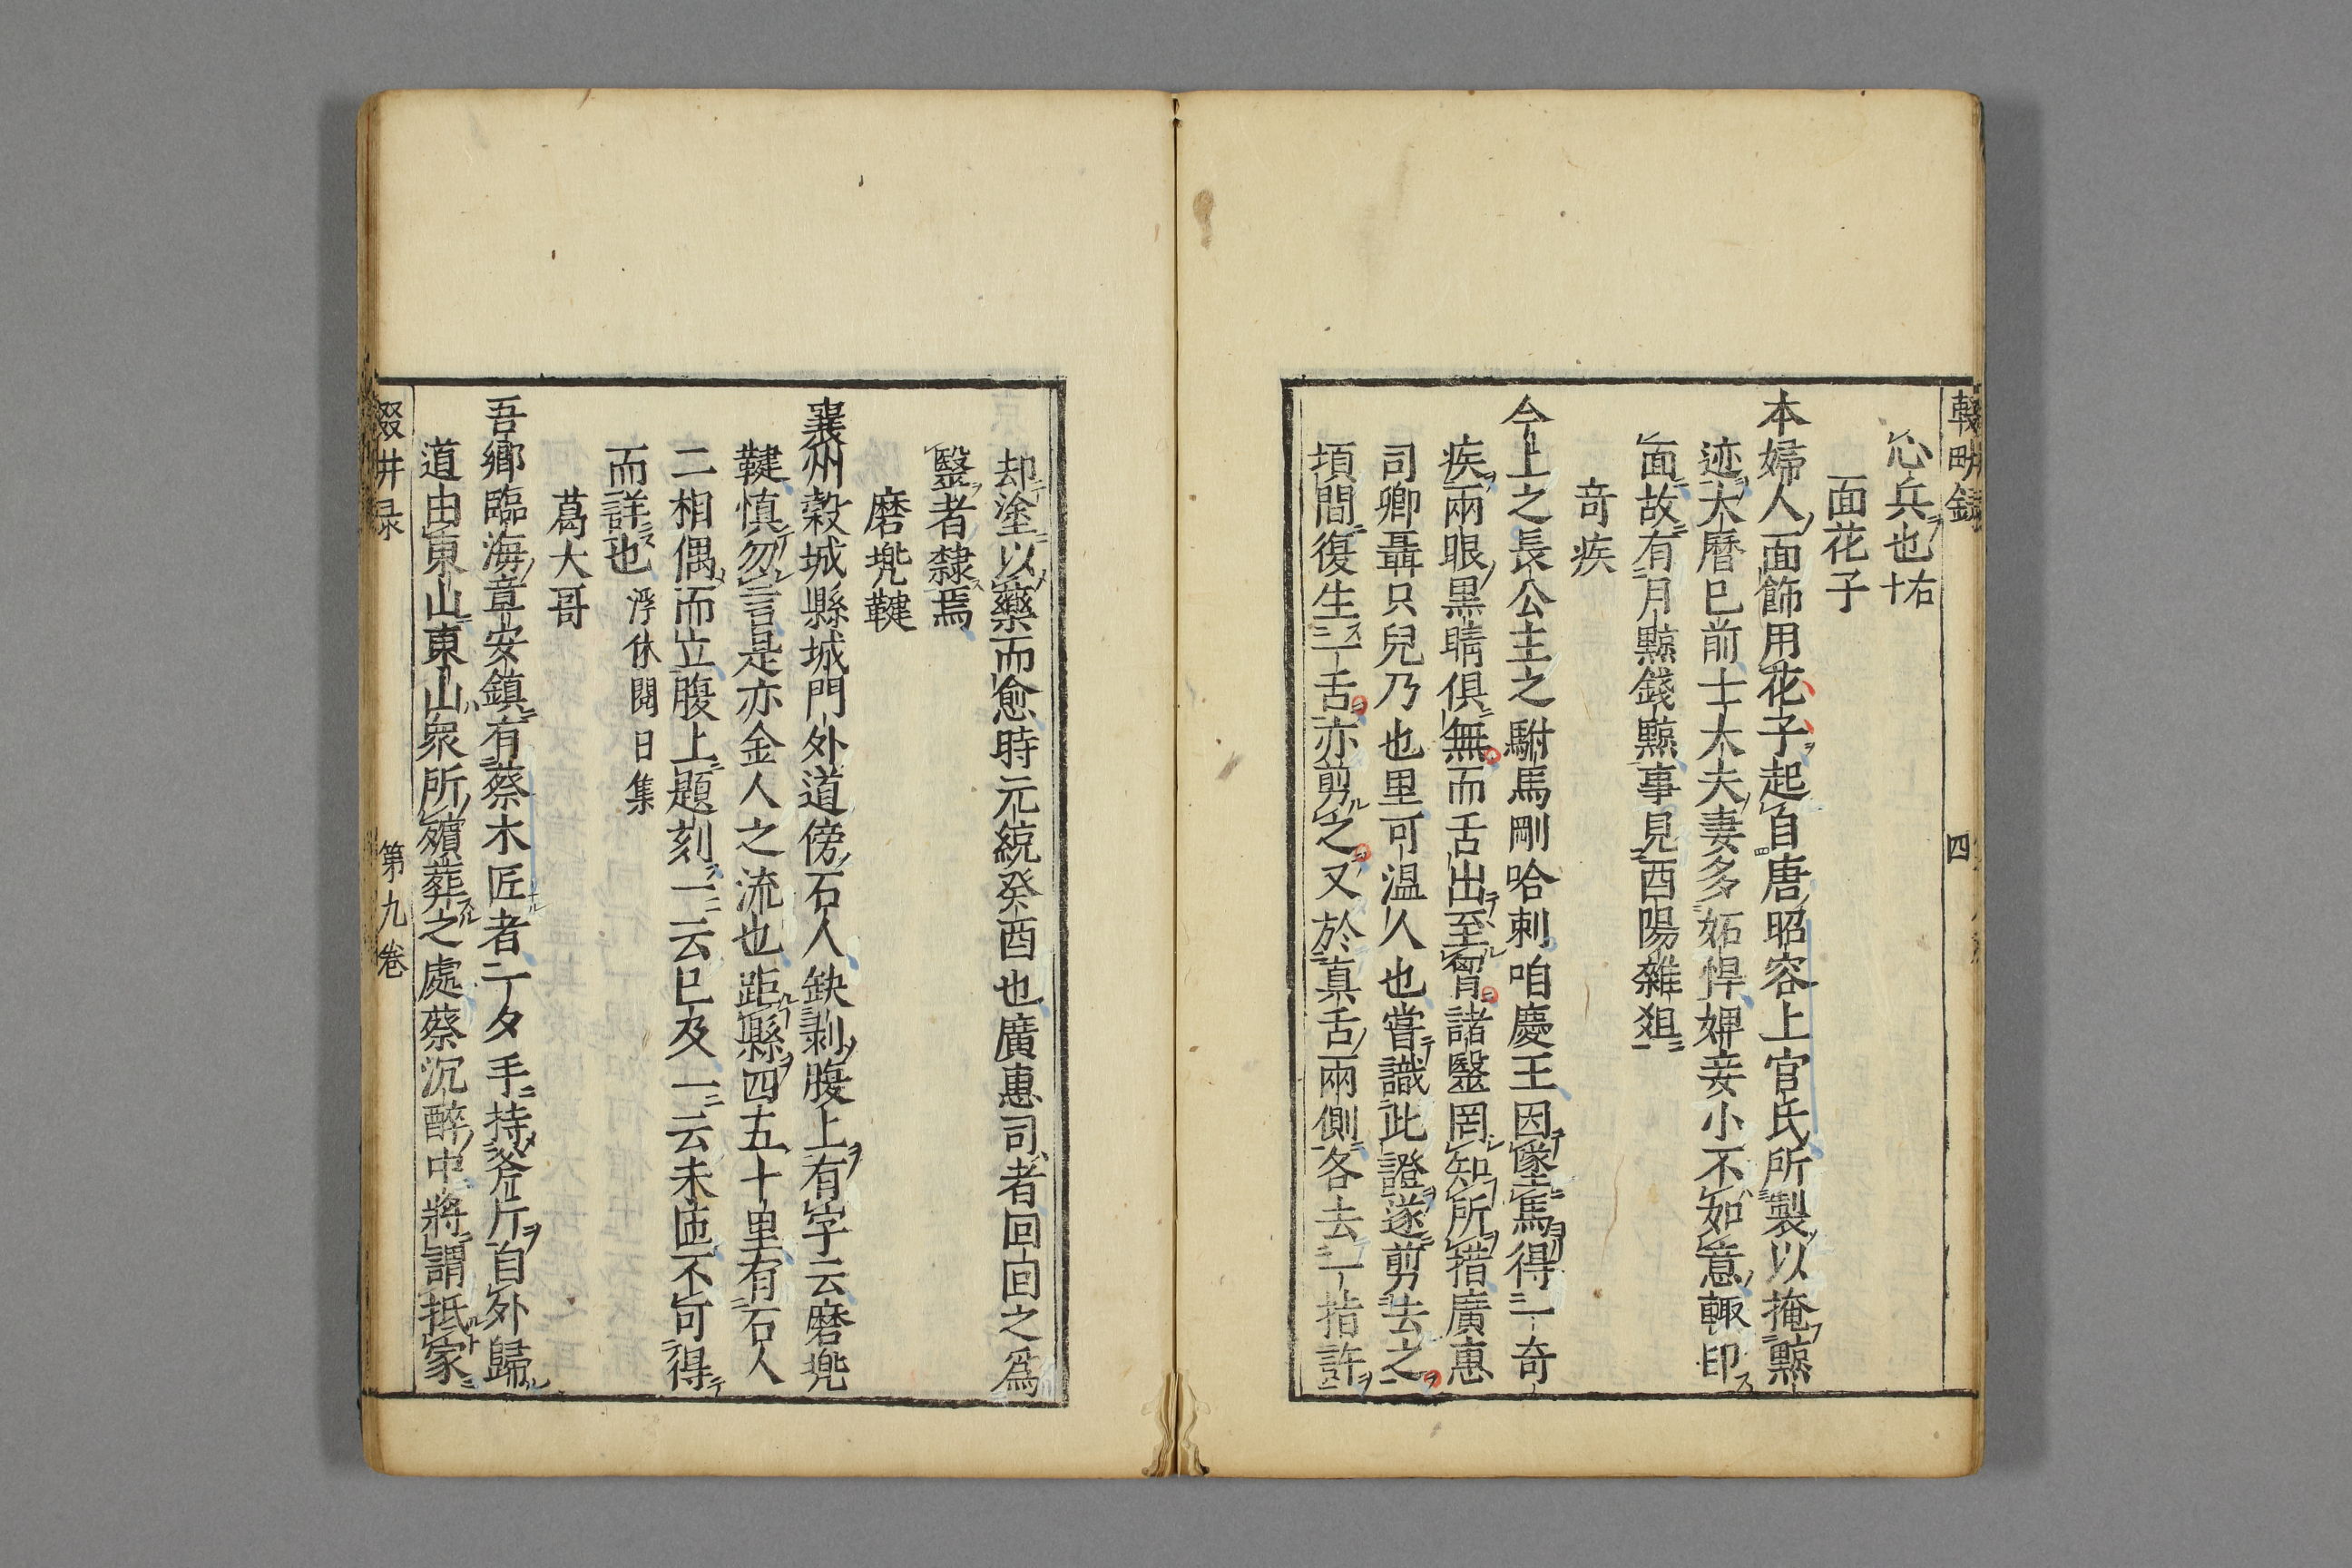 心兵也右十
面花子
本婦人面飾用花子起自唐昭容上官氏所製以掩黥
迹大曆已前士大夫妻多妬悍婢妾小不如意輙印
面故有月黥錢黥事見酉陽雜俎
竒疾
今上之長公主之駙馬剛哈剌咱慶王因墜馬得一奇
疾兩眼黒睛俱無而舌出至胷諸毉罔知所措廣惠
司卿聶只兒乃也里可温人也嘗識此證遂剪去之
頃間復生一舌亦剪之又於真舌兩側各去一指許
却塗以藥而愈時元統癸酉也廣惠司者回回之爲
毉者隸焉
磨兠鞬
襄州穀城縣城門外道傍石人缺剥腹上有字云磨兠
鞬慎勿言是亦金人之流也距縣四五十里有石人
二相偶而立腹上題刻一云已及一云未匝不可得
而詳也浮休閱日集
葛大哥
吾鄉臨海章安鎮有蔡木匠者一夕手持斧斤自外歸
道由東山東山衆所殯葬之處蔡沉醉中將謂抵家
四
第九卷